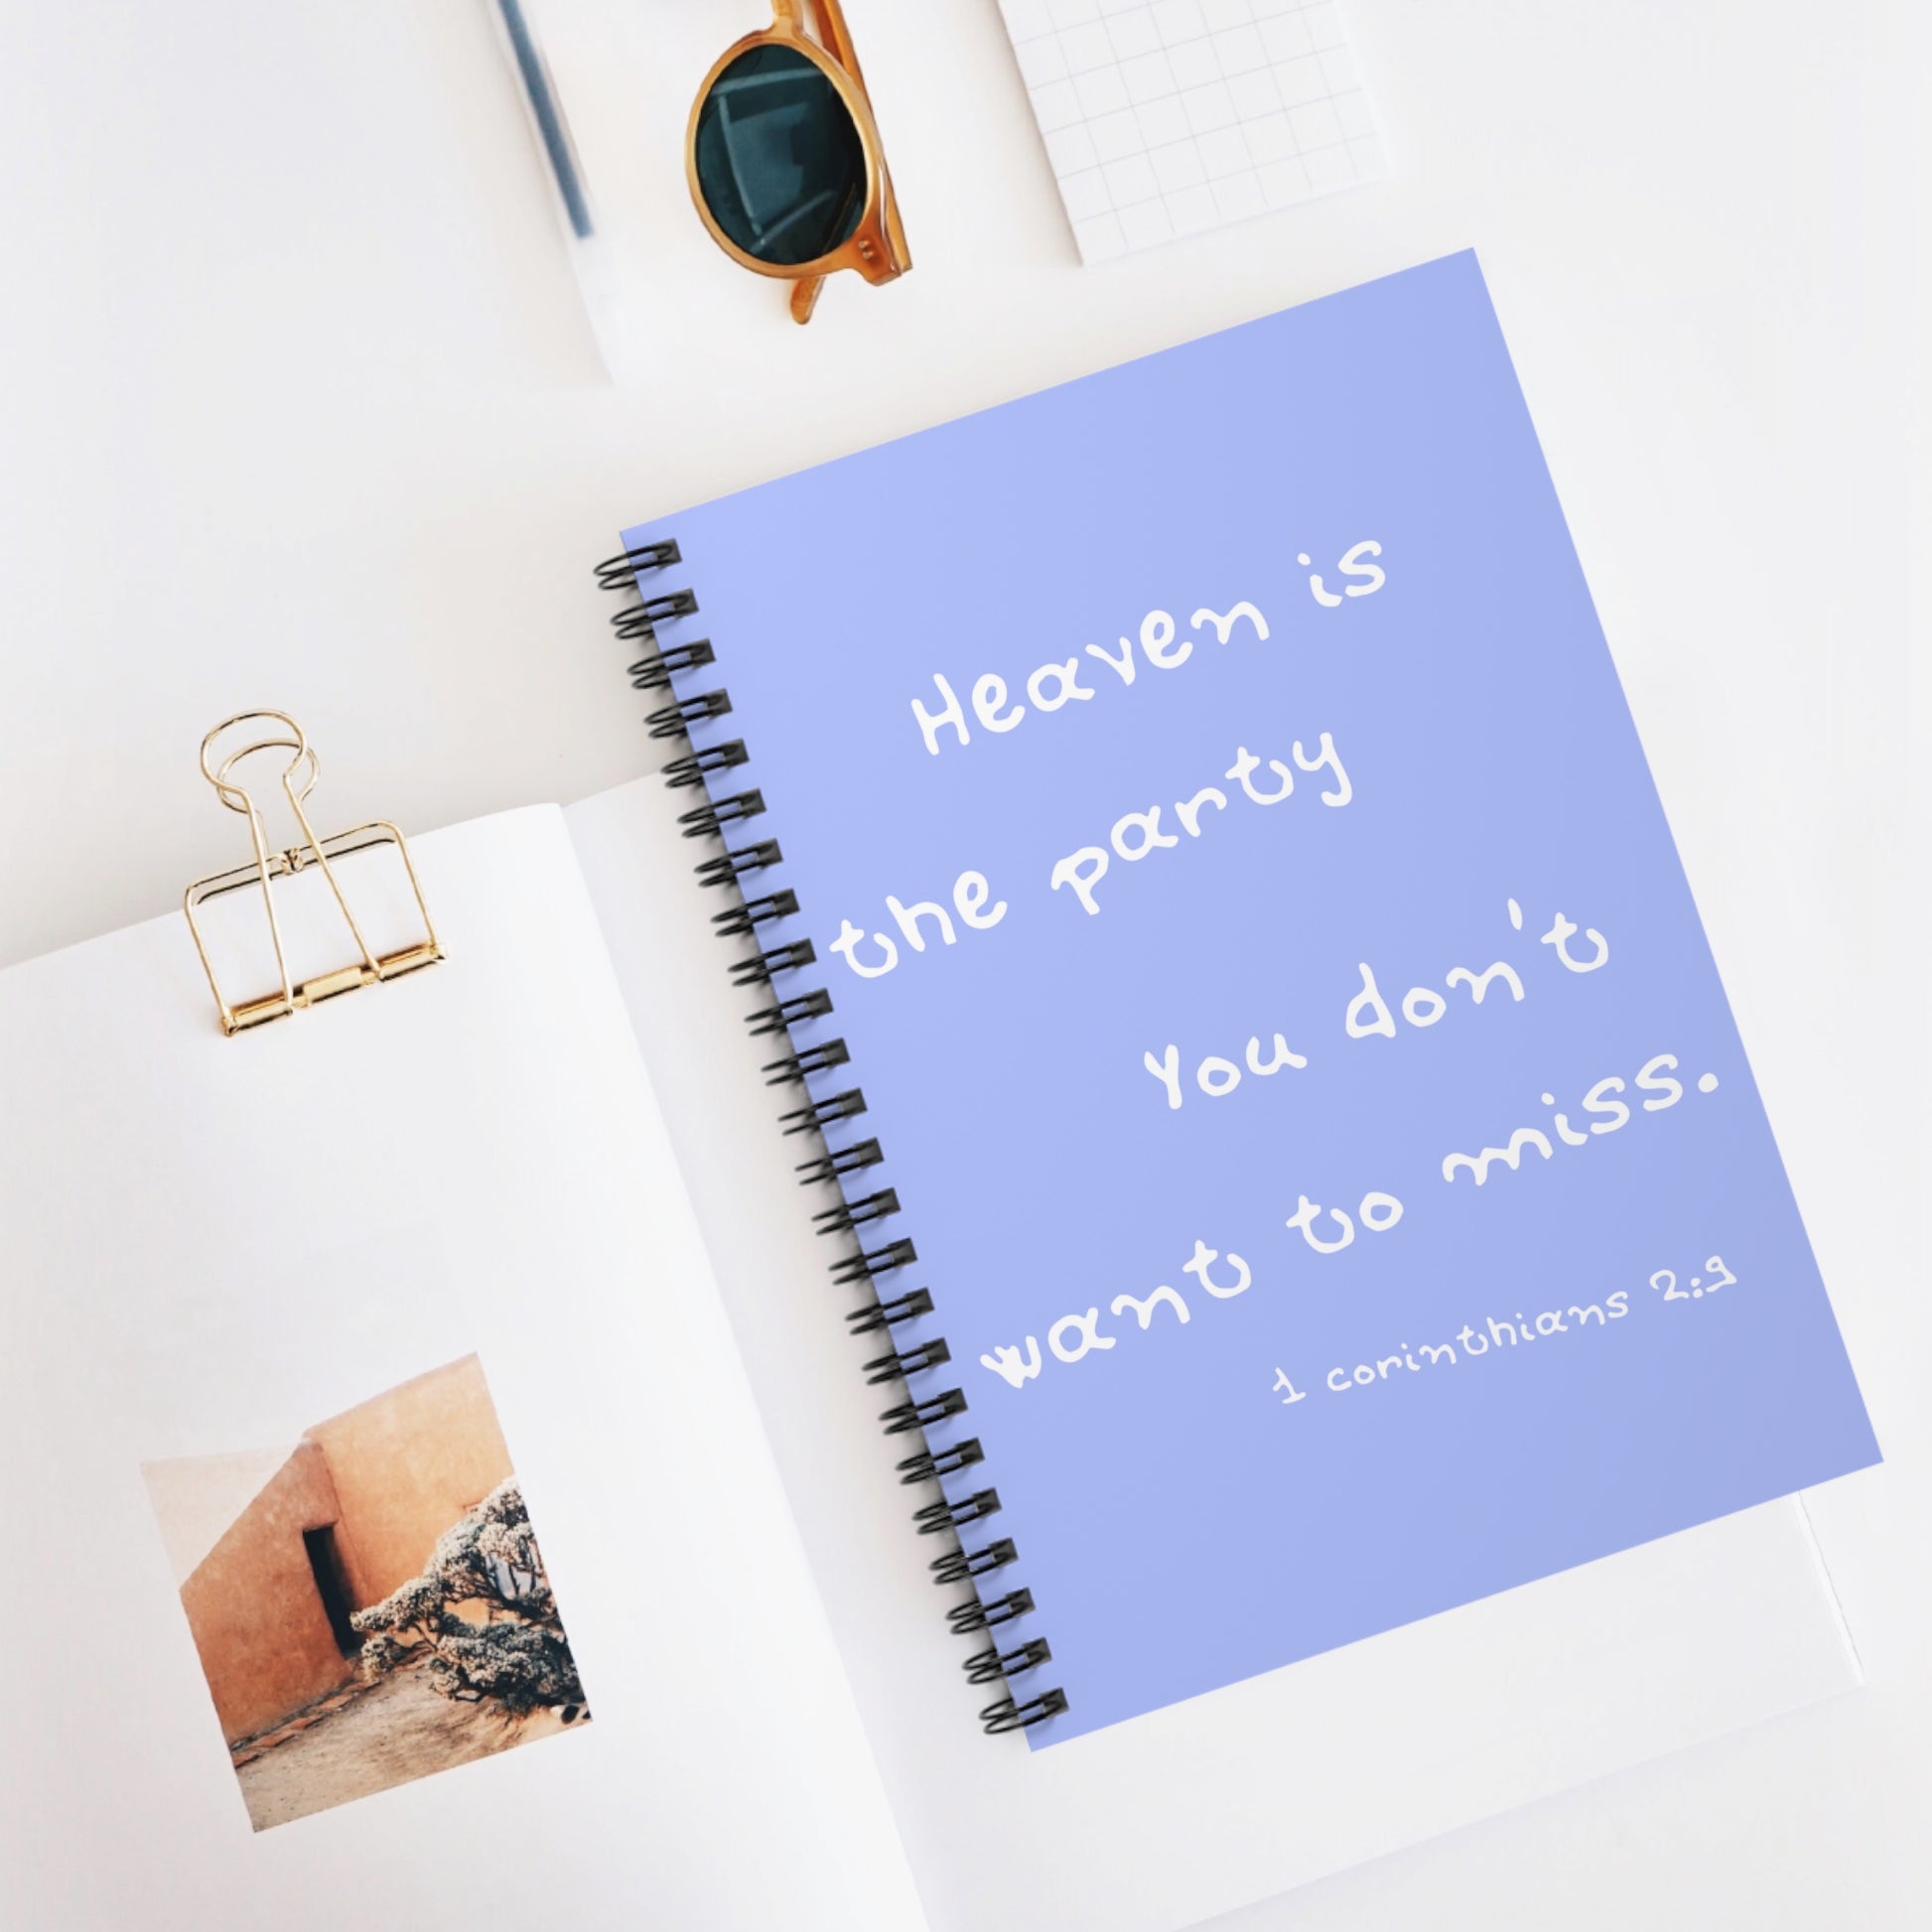 Heaven is
the party
You don't
want to miss.
1 corinthians 2:9